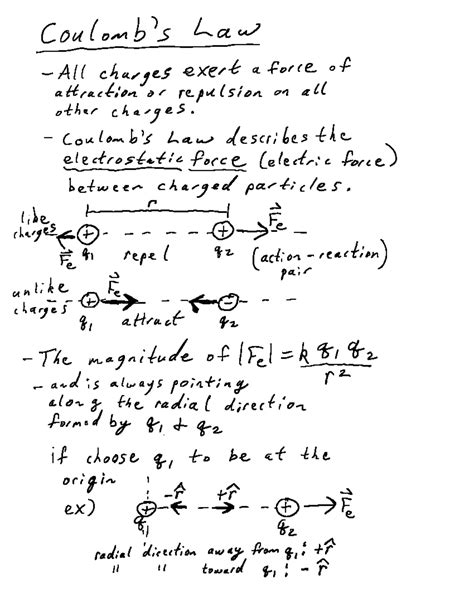 Coulomb's Law
- All charges exert a force of
attraction or repulsion on all
other charges.
- Coulomb's Law describes the
electrostatic force (electric force)
between charged particles.
r
like
charges
F⃗e + q1 repel + q2 F⃗e (action-reaction)
pair
unlike
charges
+ F⃗e -
q1 attract q2
- The magnitude of |F⃗e| = k q1 q2 / r²
- and is always pointing
along the radial direction
formed by q1 & q2
if choose q1 to be at the
origin
ex) + -r̂ +r̂ + F⃗e
q1 q2
radial direction away from q1: +r̂
" " toward q1: -r̂